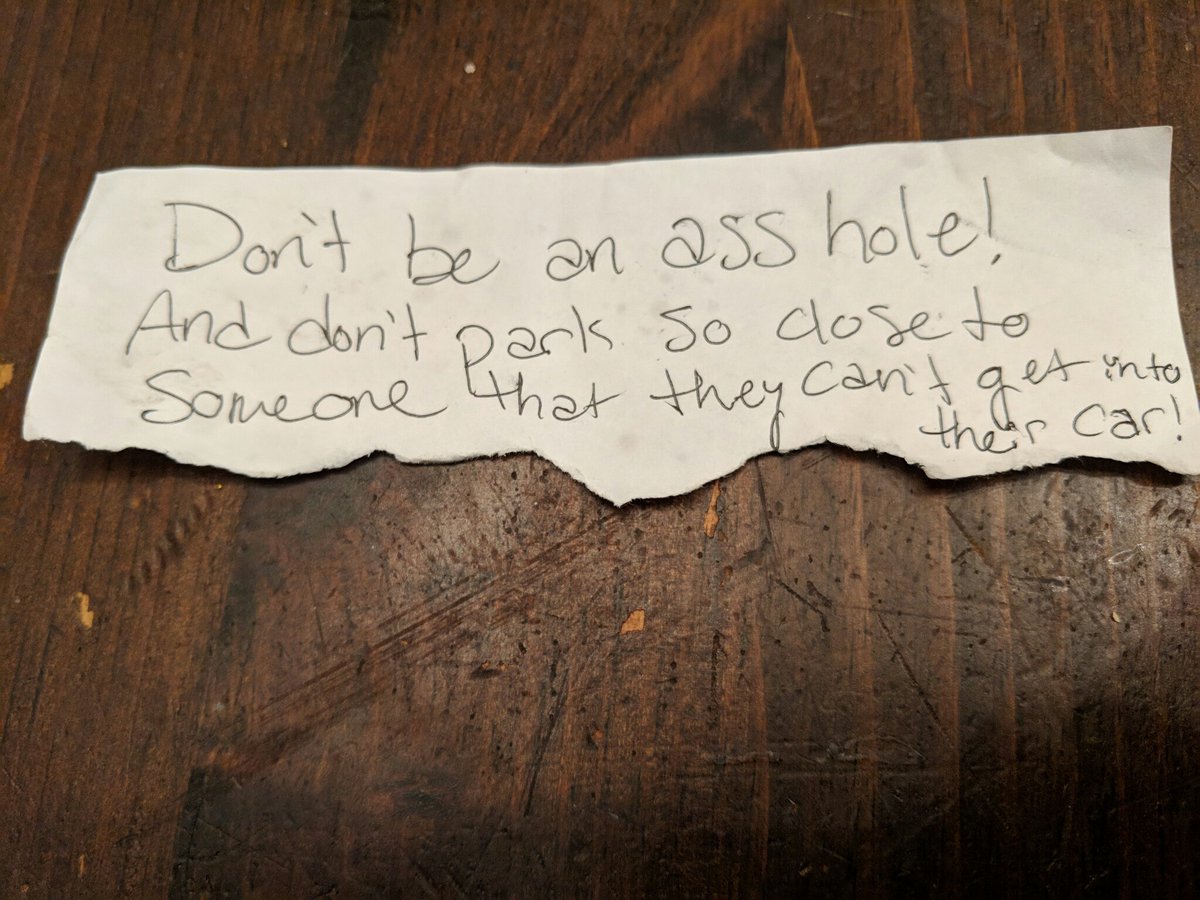 Don't be an ass hole!
And don't park so close to
Someone that they can't get into
their car!